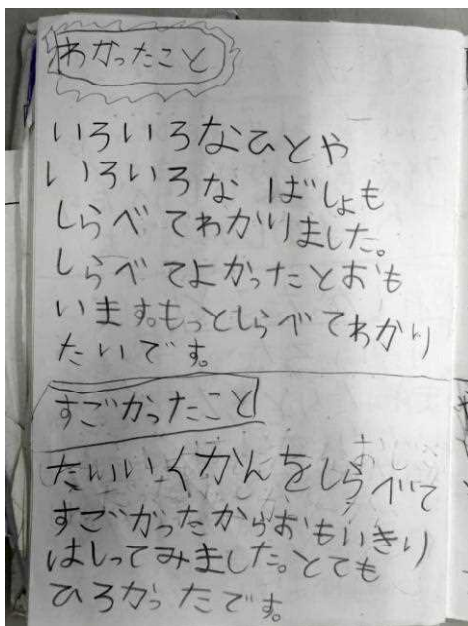 わかったこと
いろいろなひとや
いろいろな ばしょも
しらべてわかりました。
しらべてよかったとおも
います。もっとしらべてわかり
たいです。
すごかったこと
たいいくかんをしらべて
すごかったからおもいきり
はしってみました。とても
ひろかったです。